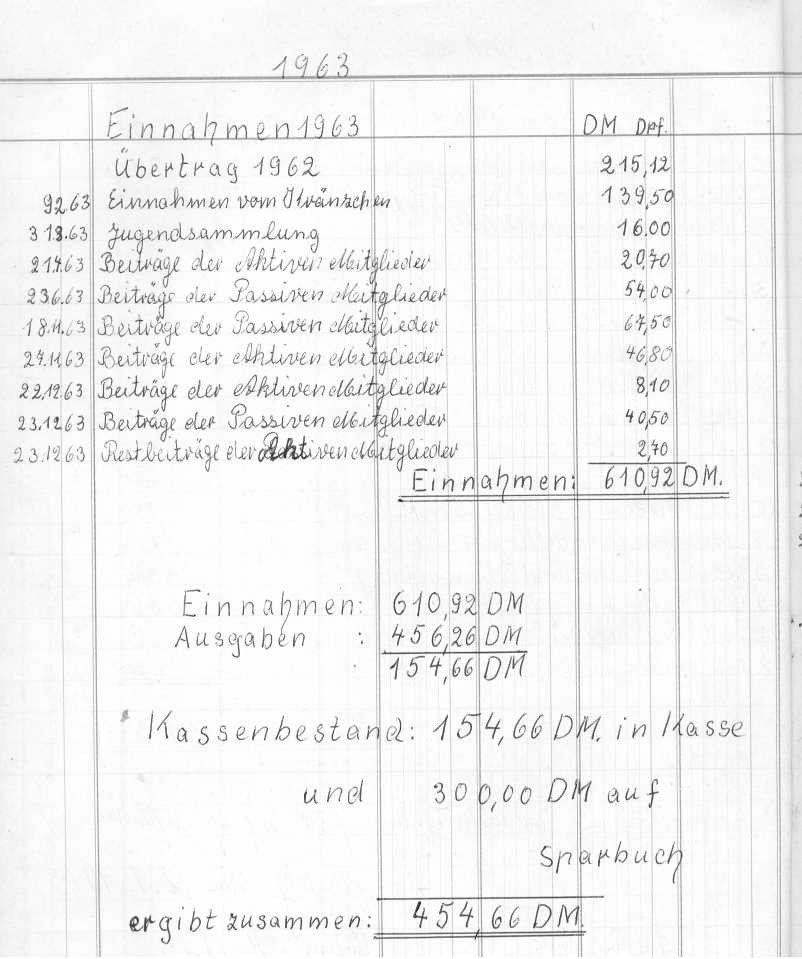 1963
Einnahmen 1963 DM Dpf.
Übertrag 1962 215,12
9.2.63 Einnahmen vom Kränzchen 139,50
31.3.63 Jugendsammlung 16,00
21.4.63 Beiträge der Aktiven Mitglieder 20,70
23.6.63 Beiträge der Passiven Mitglieder 54,00
18.11.63 Beiträge der Passiven Mitglieder 67,50
24.11.63 Beiträge der Aktiven Mitglieder 46,80
22.12.63 Beiträge der Aktiven Mitglieder 8,10
23.12.63 Beiträge der Passiven Mitglieder 40,50
23.12.63 Restbeiträge der Aktiven Mitglieder 2,70
Einnahmen: 610,92 DM.
Einnahmen: 610,92 DM
Ausgaben : 456,26 DM
154,66 DM
Kassenbestand: 154,66 DM. in Kasse
und 300,00 DM auf
Sparbuch
ergibt zusammen: 454,66 DM.